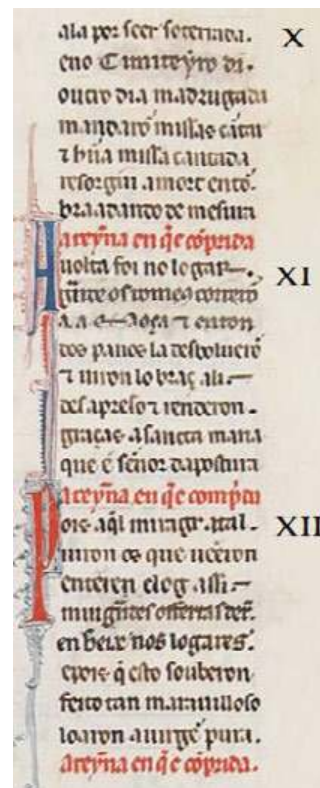 ala por seer soterrada. X
eno Cimiteyro di.
outro dia madrugada
mandarõ missas cãtar
⁊ hũa missa cantada
entõ.
braadando de mesura
a reyna en q̃e cõprida
Auolta foi no logar XI
grãde os romeus correrõ
⁊ enton
dos panos la desboluerõ
⁊ uiron lo braç ali.
desapreso ⁊ renderon.
graças a sancta maria
que é señor dapostura
a reyna en q̃e comp̃da
Pois aq̃l miragr atal. XII
uiron os que ueeron
assi
mui grãdes offertas der̃.
en nos logares.
e pois q̃ esto souberon
feito tan marauilloso
loaron a uirgẽ pura.
a reyna en q̃e cõprida.